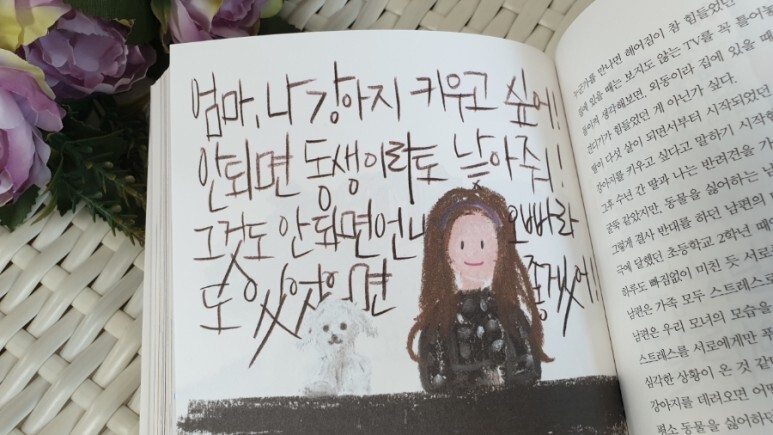 엄마, 나 강아지 키우고 싶어!
안되면 동생이라도 낳아줘!!
그것도 안되면 언니 오빠라
도 있었으면 좋겠어!!
누군가를 만나면 헤어짐이 참 힘들었던
집에 있을 때는 보지도 않는 TV를 꼭 틀어놓
돌이켜 생각해보면, 외동이라 집에 있을 때
견디기가 힘들었던 게 아닌가 싶다.
딸이 다섯 살이 되면서부터 시작되었던
강아지를 키우고 싶다고 말하기 시작한
그후 수년 간 딸과 나는 반려견을 가
굴뚝 같았지만, 동물을 싫어하는 남편
그렇게 결사 반대를 하던 남편의
극에 달했던 초등학교 2학년 때
하루도 빠짐없이 미친 듯 서로
남편은 가족 모두 스트레스
남편은 우리 모녀의 모습을
스트레스를 서로에게만
심각한 상황이 온 것 같
강아지를 데려오면 어
최소 동물을 싫어하던